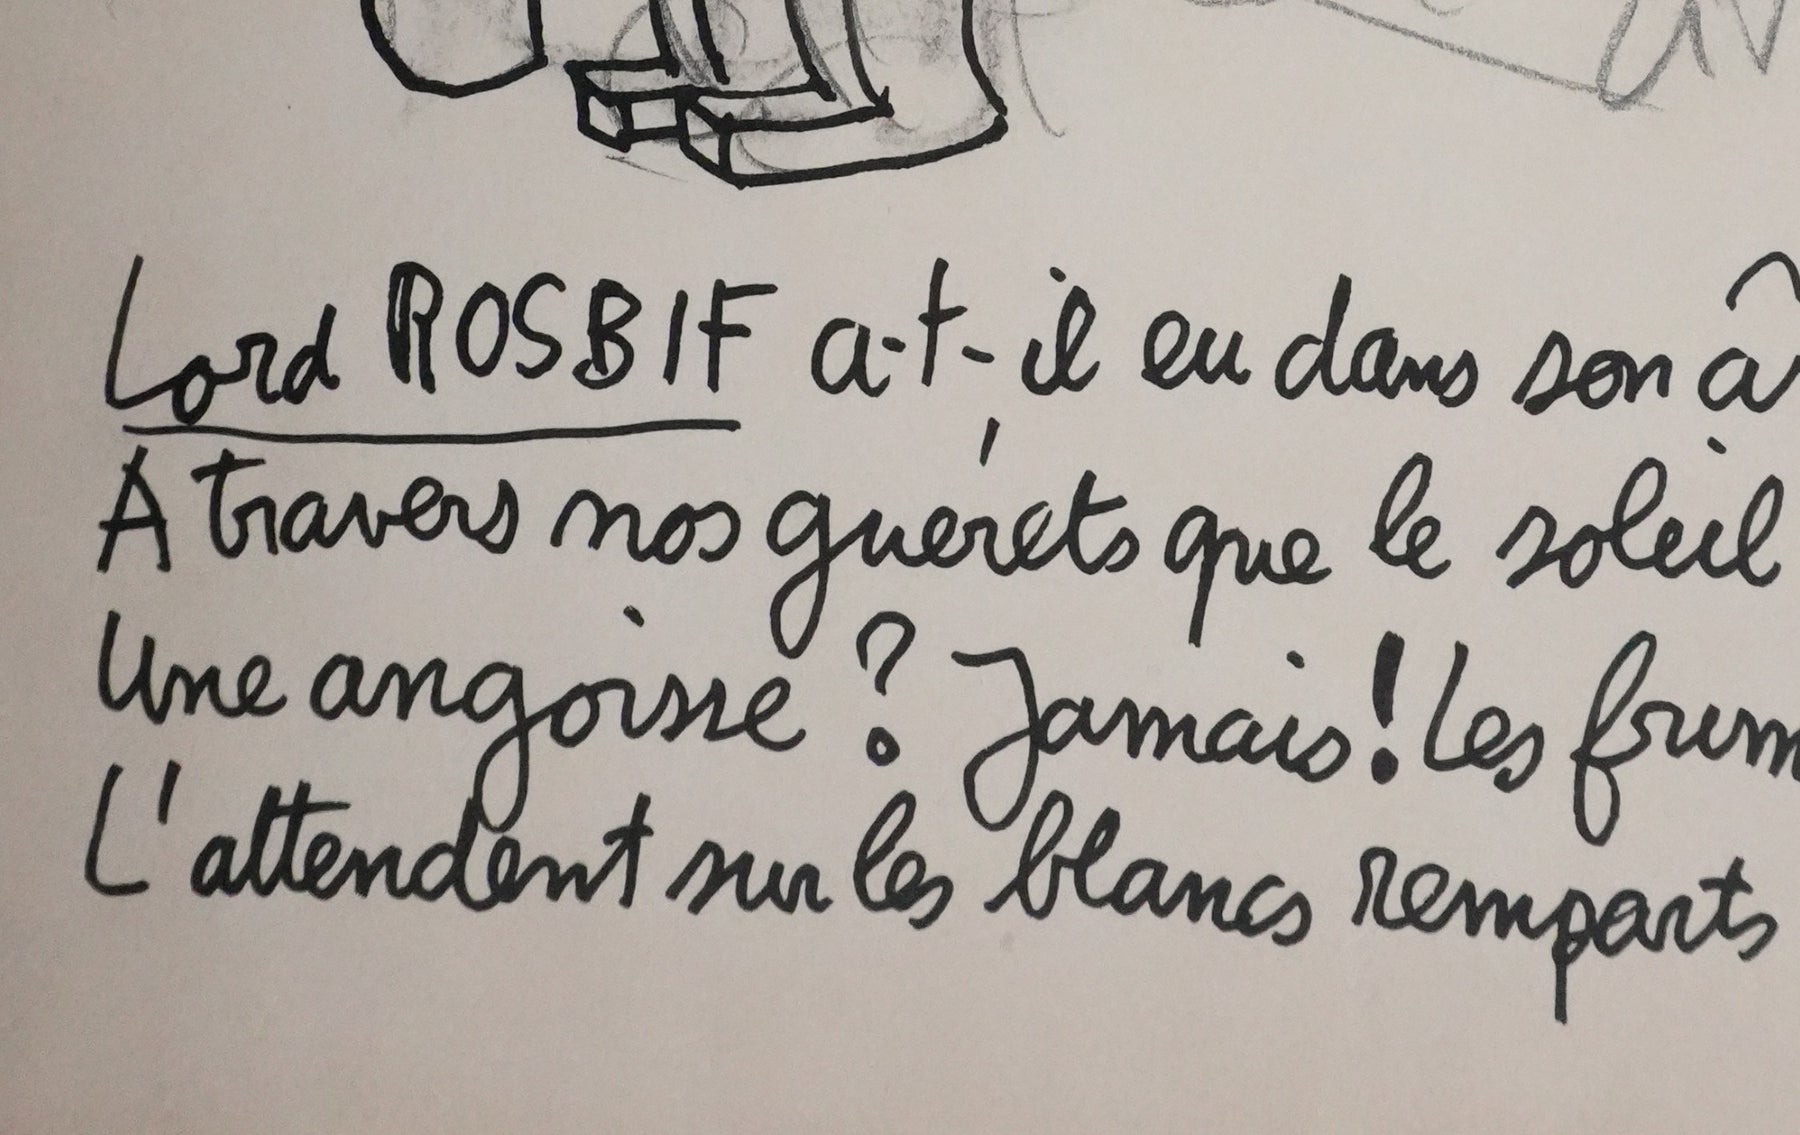 Lord ROSBIF a-t-il eu dans son
A travers nos guérets que le soleil
Une angoisse ? Jamais ! Les
L'attendent sur les blancs remparts